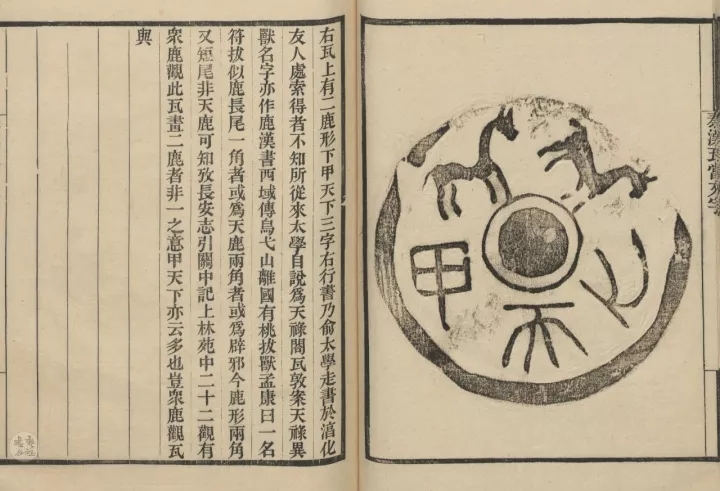 秦漢瓦當文字
甲天下
右瓦上有二鹿形下甲天下三字右行書乃俞太學走書於湻化
友人處索得者不知所從來太學自說爲天祿閣瓦敦案天祿異
獸名字亦作鹿漢書西域傳烏弋山離國有桃拔獸孟康曰一名
符拔似鹿長尾一角者或爲天鹿兩角者或爲辟邪今鹿形兩角
又短尾非天鹿可知攷長安志引關中記上林苑中二十二觀有
衆鹿觀此瓦畫二鹿者非一之意甲天下亦云多也豈衆鹿觀瓦
與